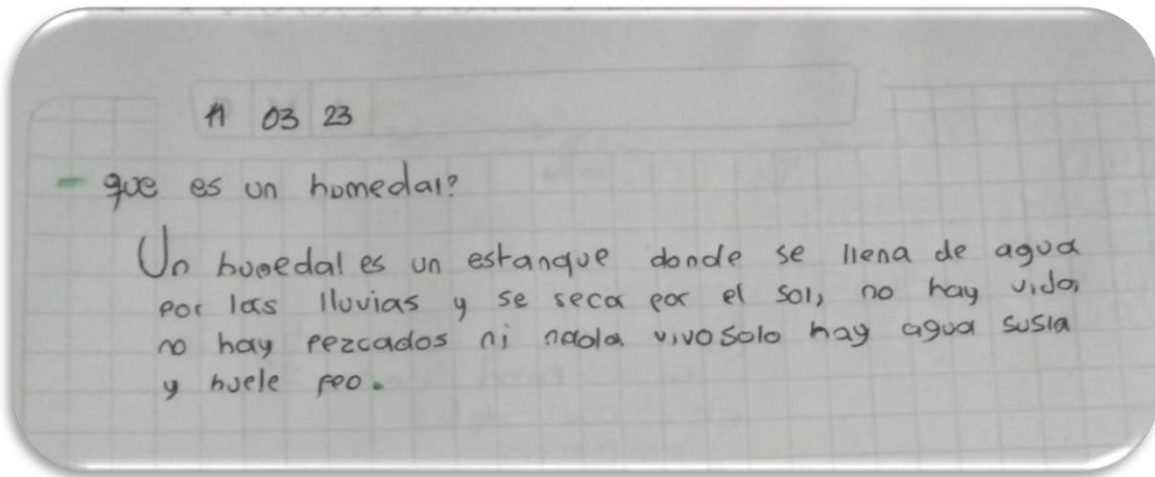 11 03 23
- que es un humedal?
Un humedal es un estanque donde se llena de agua
por las lluvias y se seca por el sol, no hay vida,
no hay pezcados ni nada vivo solo hay agua susia
y huele feo.